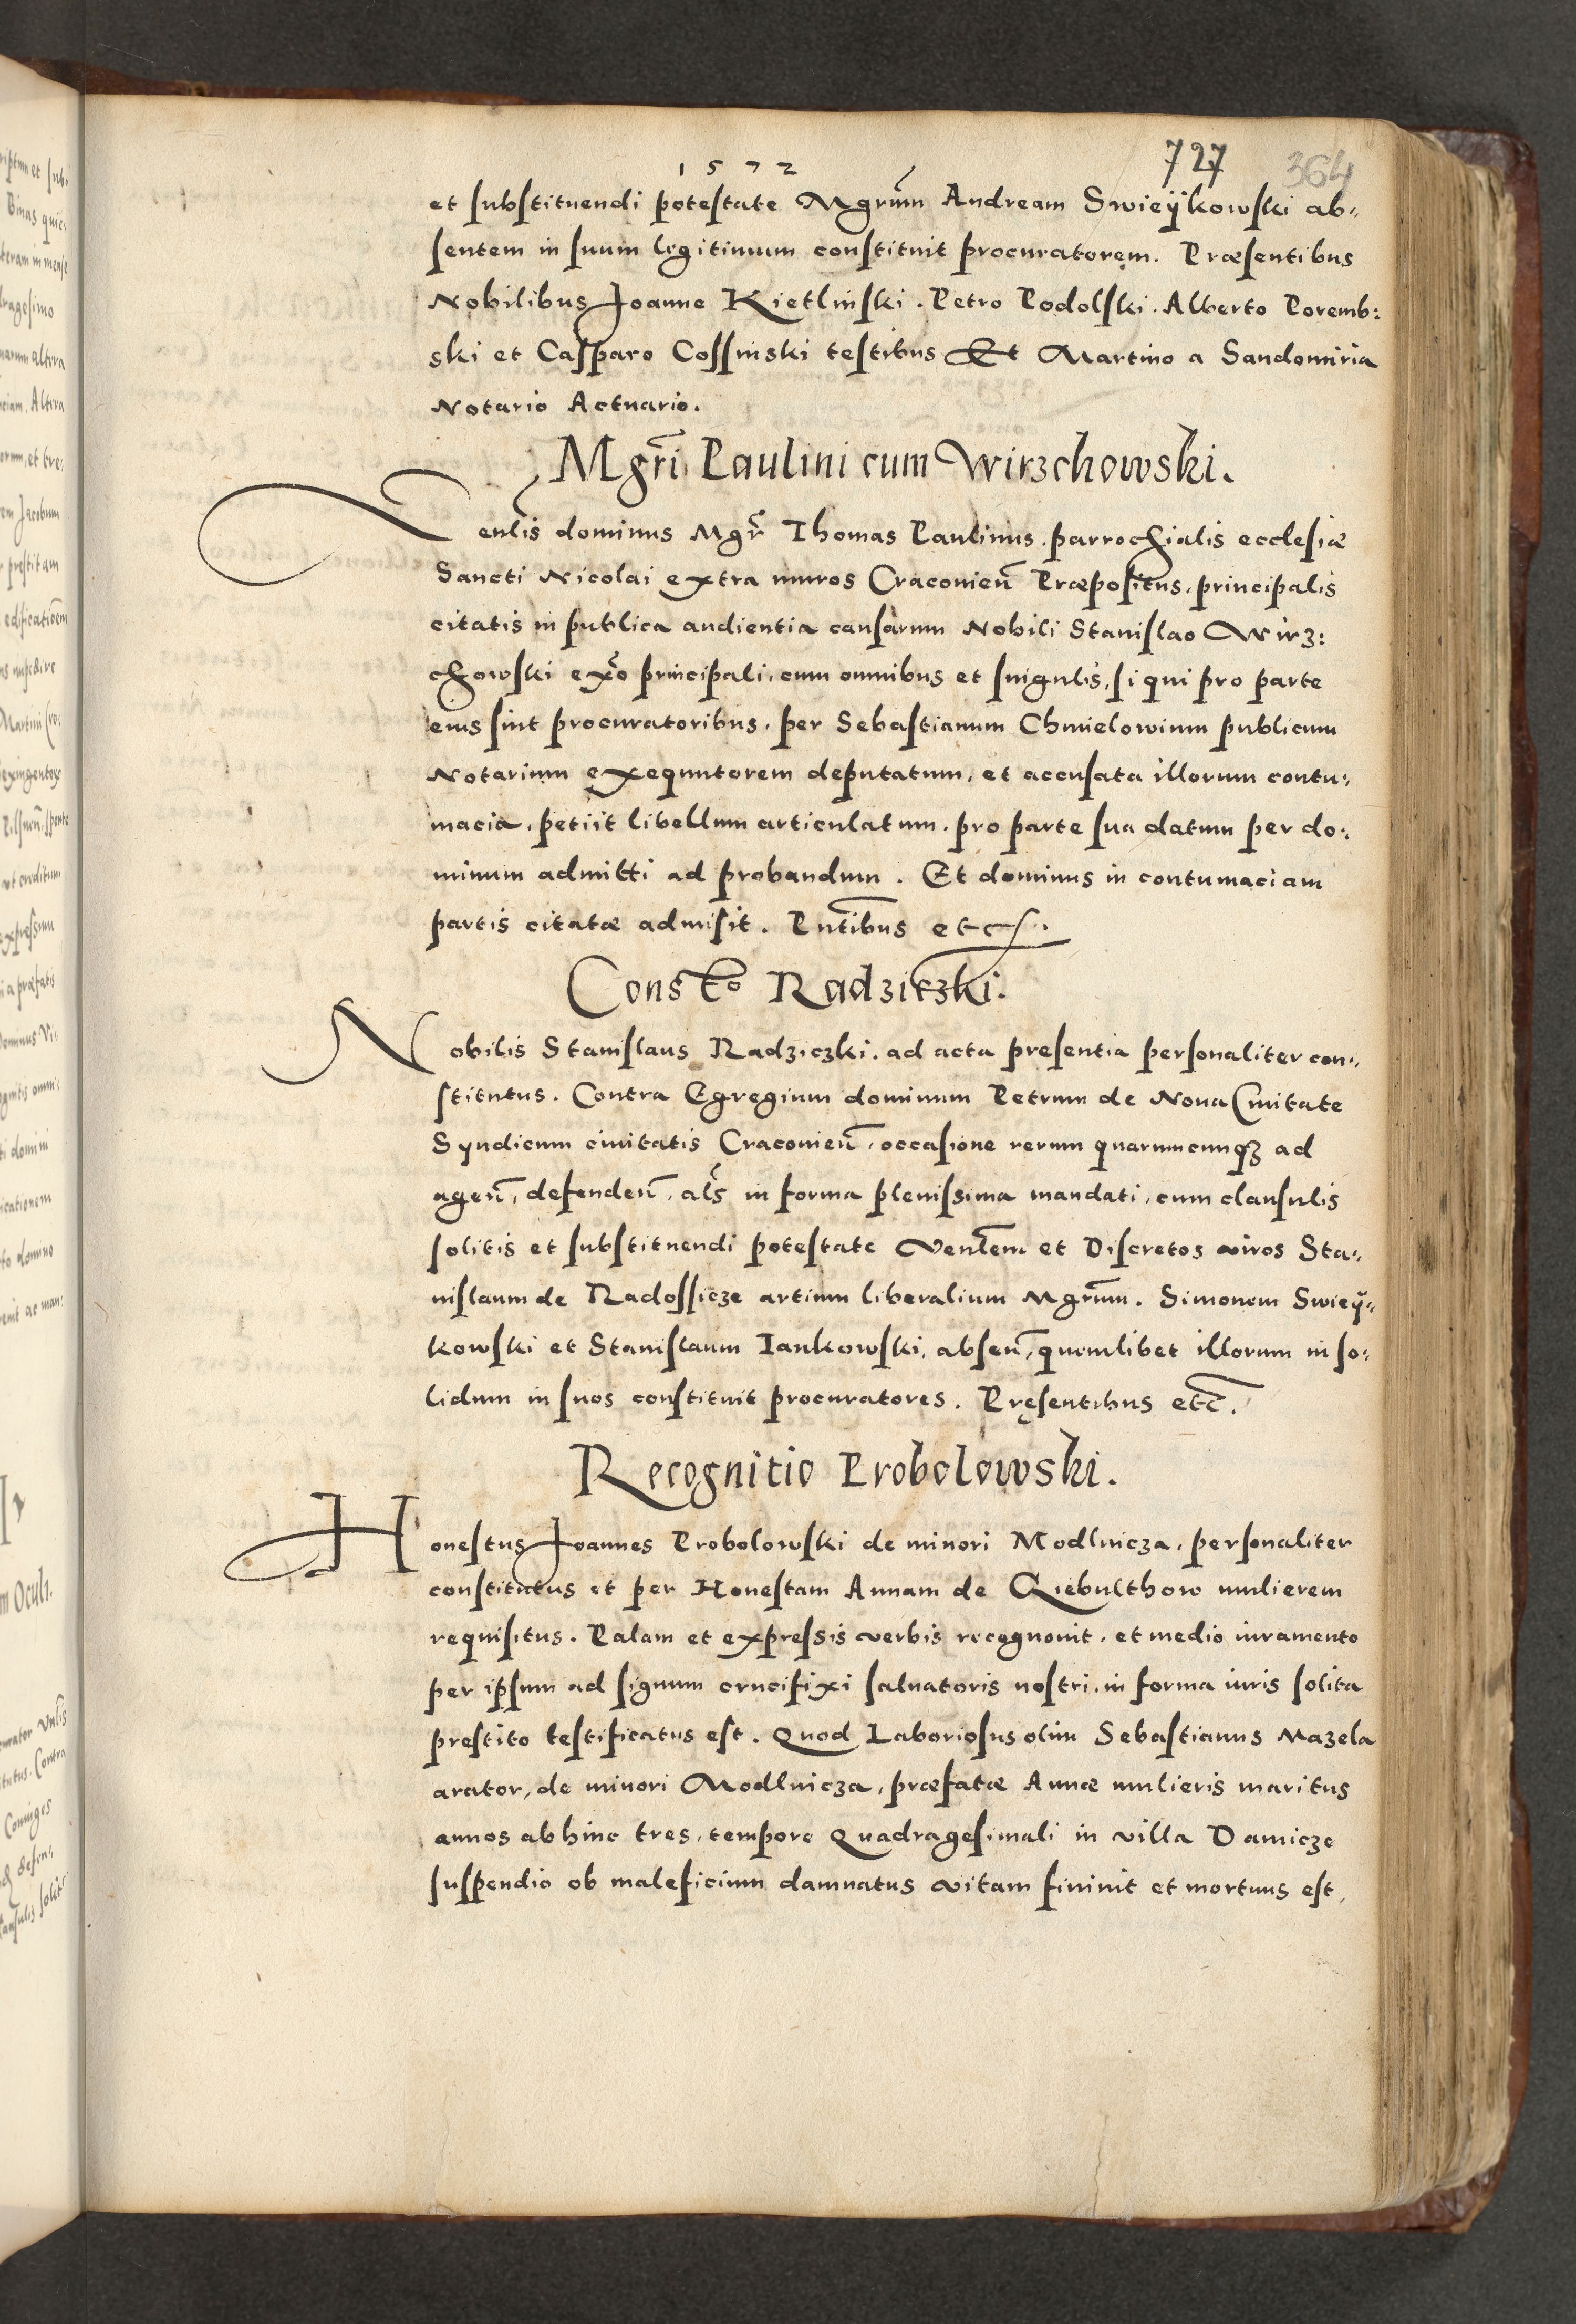 1572
727
364
et substituendi potestate Mgrum Andream Swieÿkowski ab-
sentem in suum legitimum constituit procuratoręm. Præsentibus
Nobilibus Joanne Kietlinski. Petro Podolski. Alberto Poremb:
ski et Casparo Cossinski testibus Et Martino a Sandomiria
Notario Actuario.
Mgri Paulini cum Wirzchowski.
Venlis dominus Mgr Thomas Paulinus. parrochialis ecclesiæ
Sancti Nicolai extra muros Cracovien Præpositus, principalis
citatis in publica audientia causarum Nobili Stanislao Wirz:
chowski exo principali, cum omnibus et singulis, si qui pro parte
eius sint procuratoribus, per Sebastianum Chmielowium publicum
Notarium exequutorem deputatum, et accusata illorum contu-
macia, petiit libellum articulatum, pro parte sua datum per do-
minum admitti ad probandum. Et dominus in contumaciam
partis citatæ admisit. Pntibus etc.
Consto Radziczki.
Nobilis Stanislaus Radziczki. ad acta presentia personaliter con-
stitutus. Contra Egregium dominum Petrum de Noua Ciuitate
Syndicum ciuitatis Cracouien, occasione rerum quarumcunqz ad
agen, defenden, als in forma plenissima mandati, cum clausulis
solitis et substituendi potestate Venlem et Discretos viros Sta-
nislaum de Radossicze artium liberalium Mgrum. Simonem Swieÿ-
kowski et Stanislaum Iankowski, absen, quemlibet illorum in so-
lidum in suos constituit procuratores. Pręsentibus etc.
Recognitio Probolowski.
Honestus Joannes Probolowski de minori Modlnicza, personaliter
constitutus et per Honestam Annam de Giebulthow mulierem
requisitus. Palam et expressis verbis recognouit, et medio iuramento
per ipsum ad signum crucifixi saluatoris nostri, in forma iuris solita
prestito testificatus est. Quod Laboriosus olim Sebastianus Mazela
arator, de minori Modlnicza, præfatæ Annæ mulieris maritus
annos abhinc tres, tempore Quadragesimali in villa Damicze
suspendio ob maleficium damnatus vitam finiuit et mortuus est,